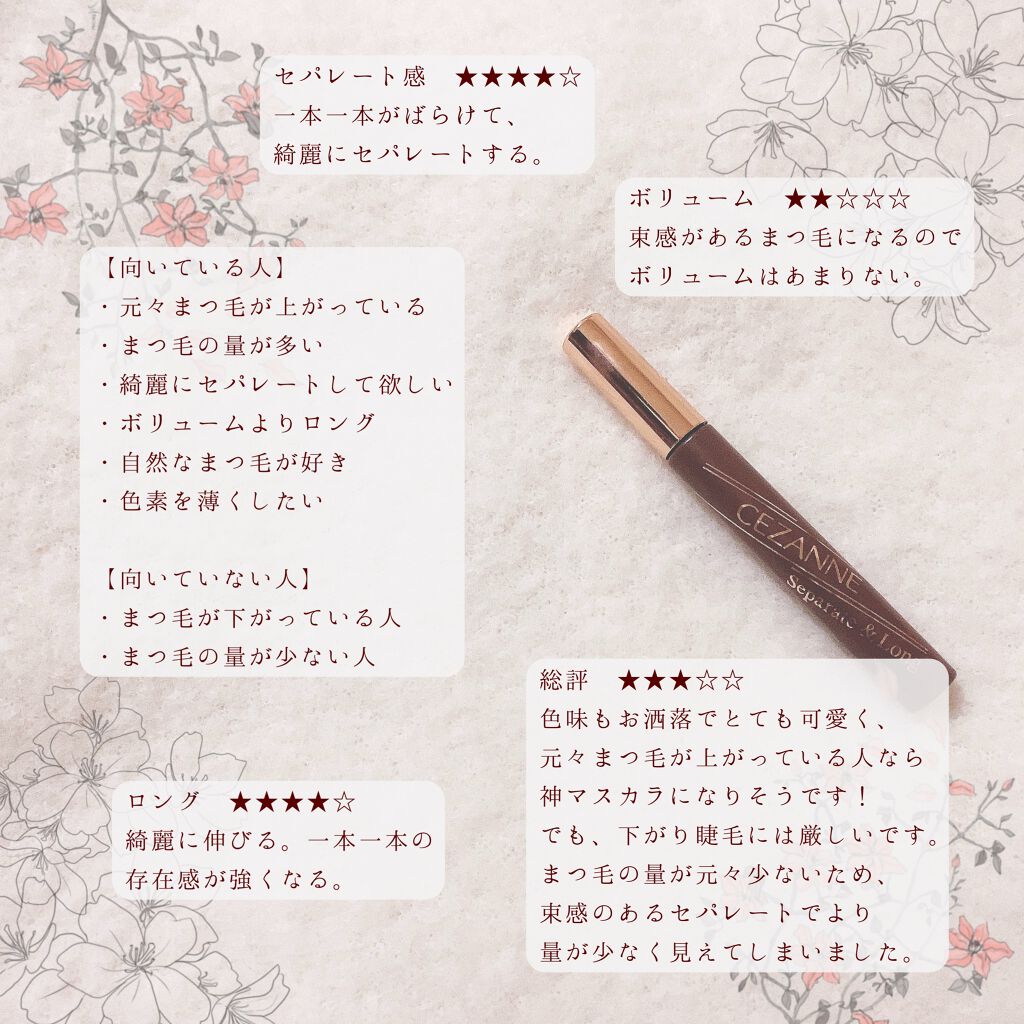 セパレート感　★★★★☆
一本一本がばらけて、
綺麗にセパレートする。
ボリューム　★★☆☆☆
束感があるまつ毛になるので
ボリュームはあまりない。
【向いている人】
・元々まつ毛が上がっている
・まつ毛の量が多い
・綺麗にセパレートして欲しい
・ボリュームよりロング
・自然なまつ毛が好き
・色素を薄くしたい
【向いていない人】
・まつ毛が下がっている人
・まつ毛の量が少ない人
CEZANNE
Separate & Lon
総評　★★★☆☆
色味もお洒落でとても可愛く、
元々まつ毛が上がっている人なら
神マスカラになりそうです！
でも、下がり睫毛には厳しいです。
まつ毛の量が元々少ないため、
束感のあるセパレートでより
量が少なく見えてしまいました。
ロング　★★★★☆
綺麗に伸びる。一本一本の
存在感が強くなる。